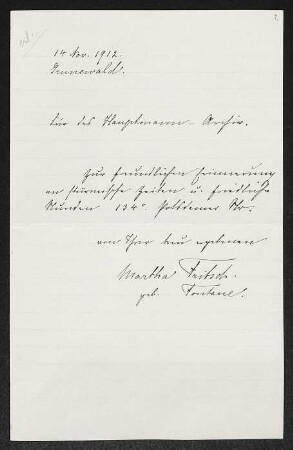 2
erl.
14 Nov. 1912.
Grunewald.
Für das Hauptmann-Archiv.
Zur freundlichen Erinnerung
an stürmische Zeiten u. friedliche
Stunden 134c Potsdamer Str.
von Ihrer treu ergebenen
Martha Fritsch.
geb. Fontane.